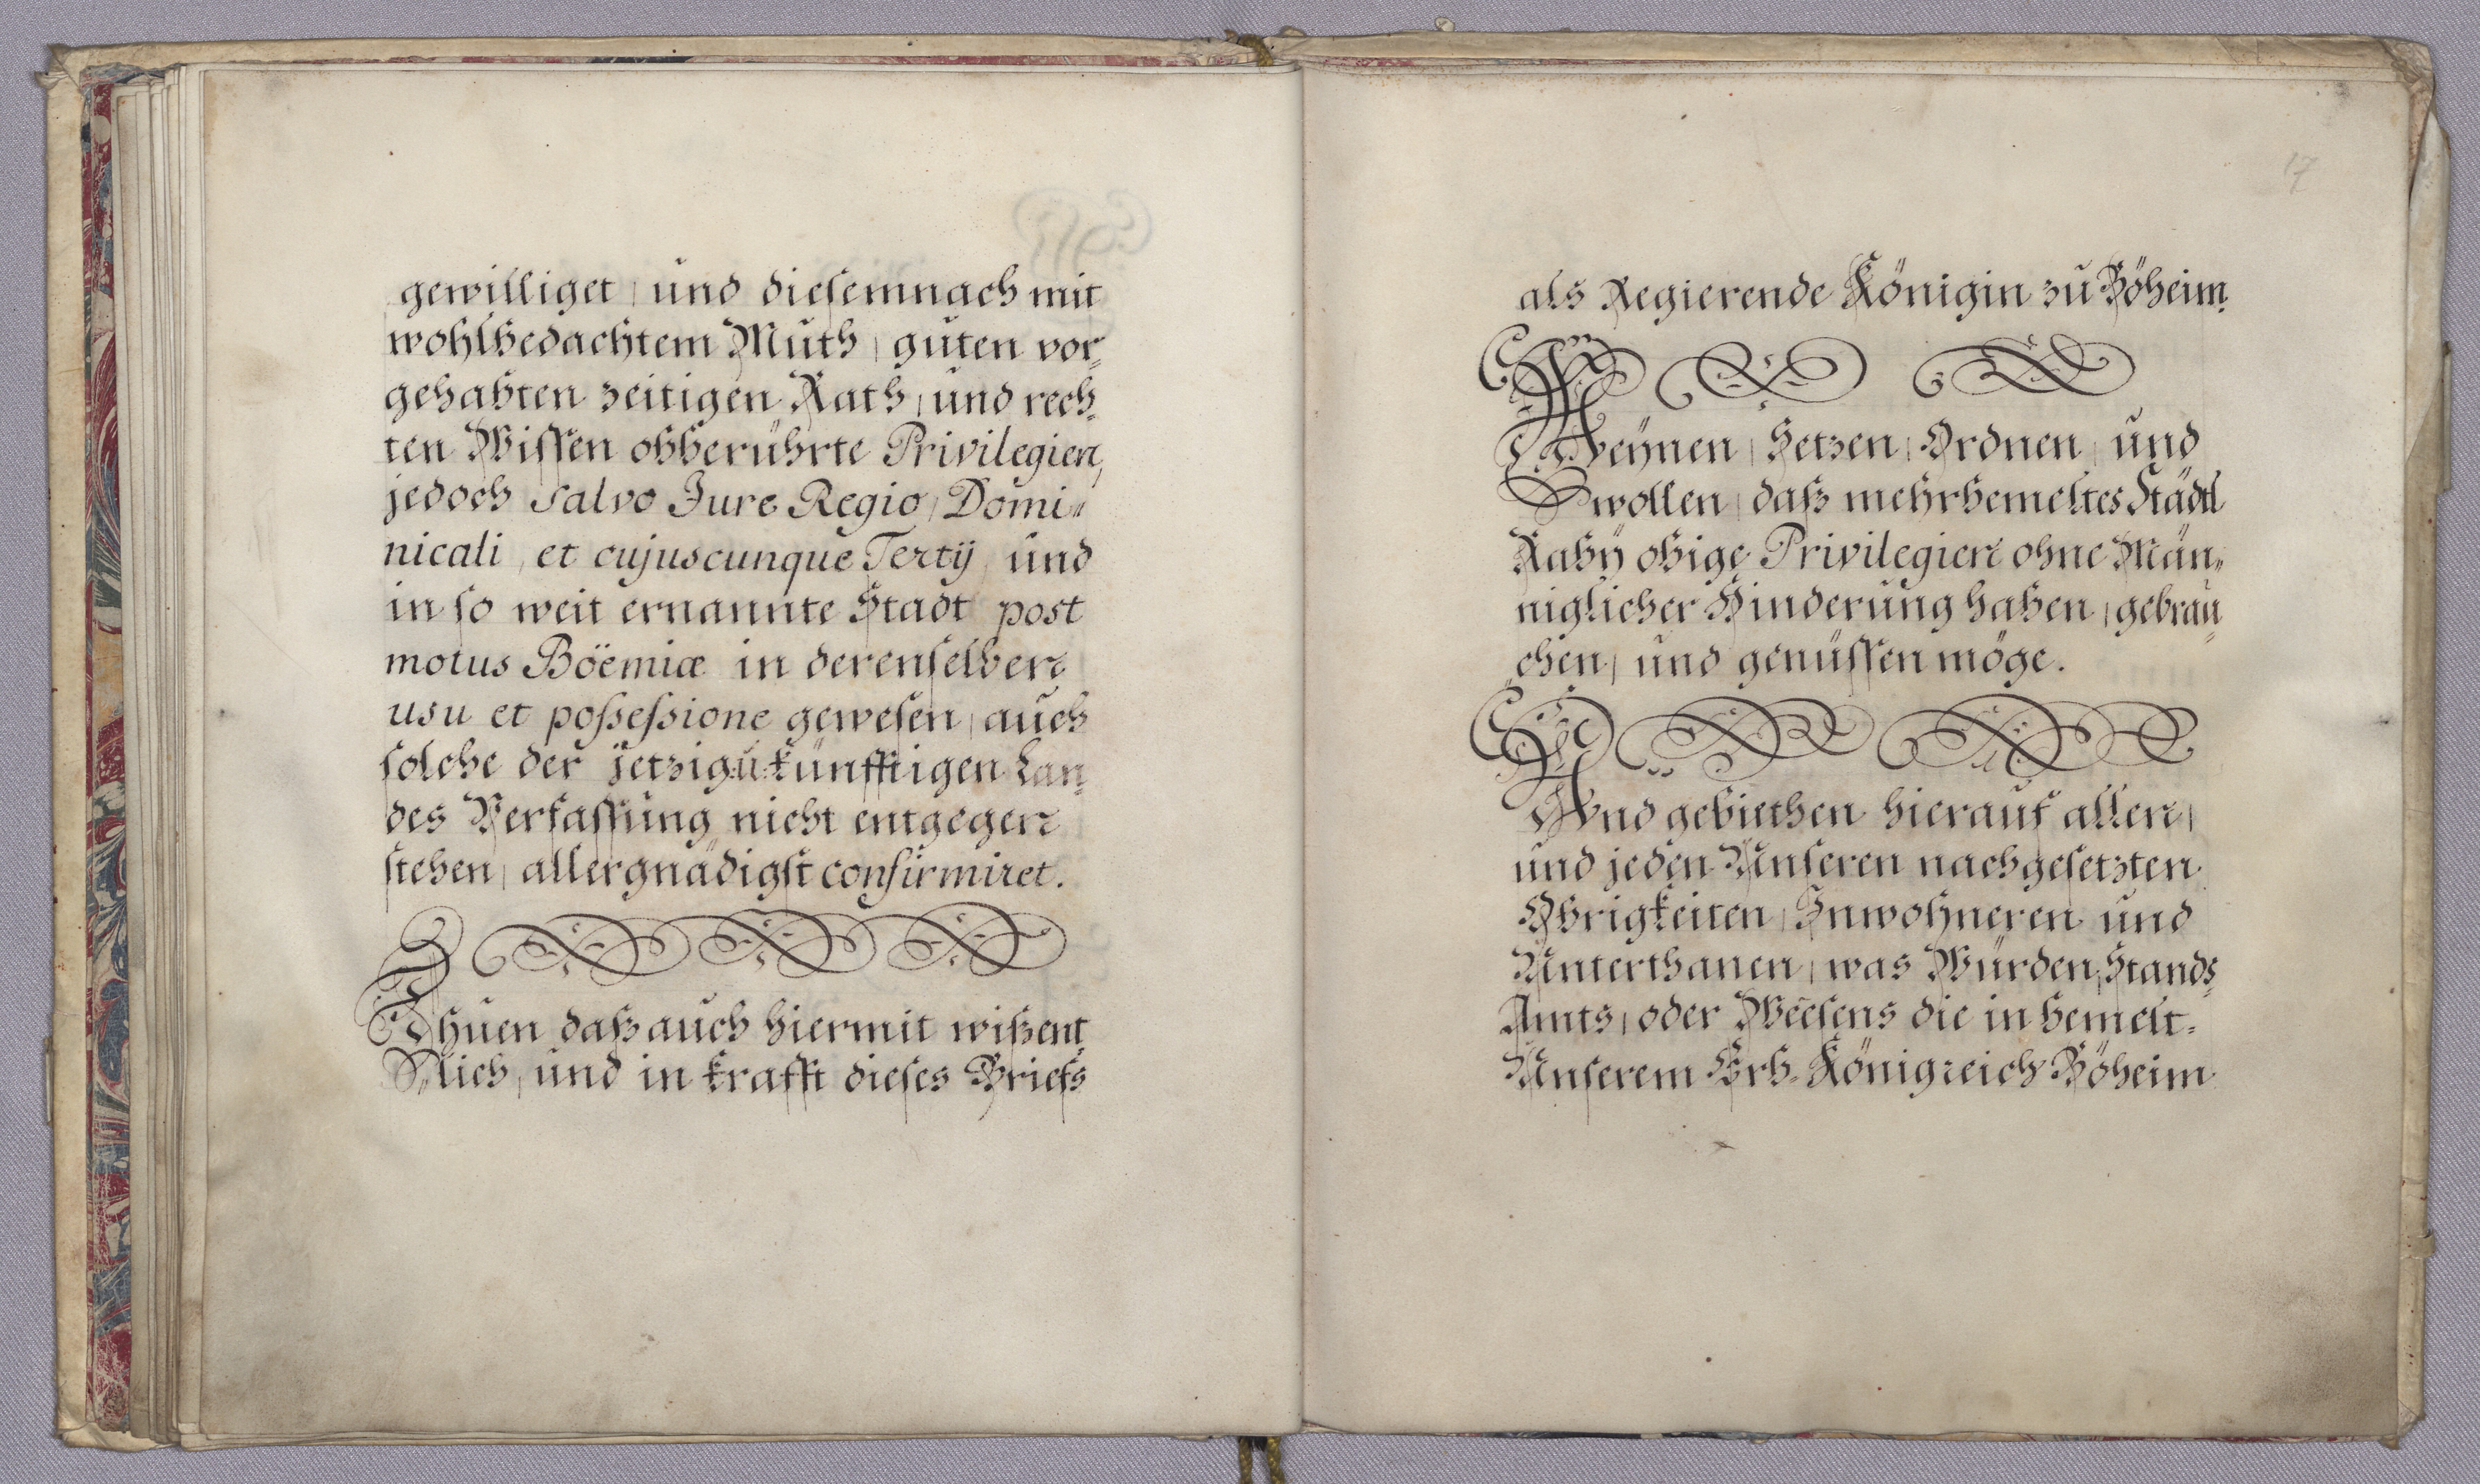 gewilliget, und diesemnach mit
wohlbedachtem Muth, guten vor-
gehabten zeitigen Rath, und rech-
ten Wissen obberührte Privilegien,
jedoch salvo Jure Regio, Domi-
nicali, et cujuscunque Tertÿ, und
in so weit ernannte Stadt post
motus Böemiæ in derenselben
usu et possessione gewesen, auch
solche der jetzig: u: künfftigen Lan-
des Verfassung nicht entgegen
stehen, allergnädigst confirmiret.
Thuen daß auch hiermit wißent-
lich, und in krafft dieses Briefs
17
als Regierende Königin zu Böheim.
Meÿnen, Setzen, Ordnen, und
wollen, daß mehrbemeltes Städtl
Rabÿ obige Privilegien ohne Män-
niglicher Hinderung haben, gebrau-
chen, und genüssen möge.
Und gebiethen hierauf allen,
und jeden Unseren nachgesetzten
Obrigkeiten, Inwohneren und
Unterthanen, was Würden, Stands,
Amts, oder Weesens die in bemelt-
Unserem Erb-Königreich Böheim